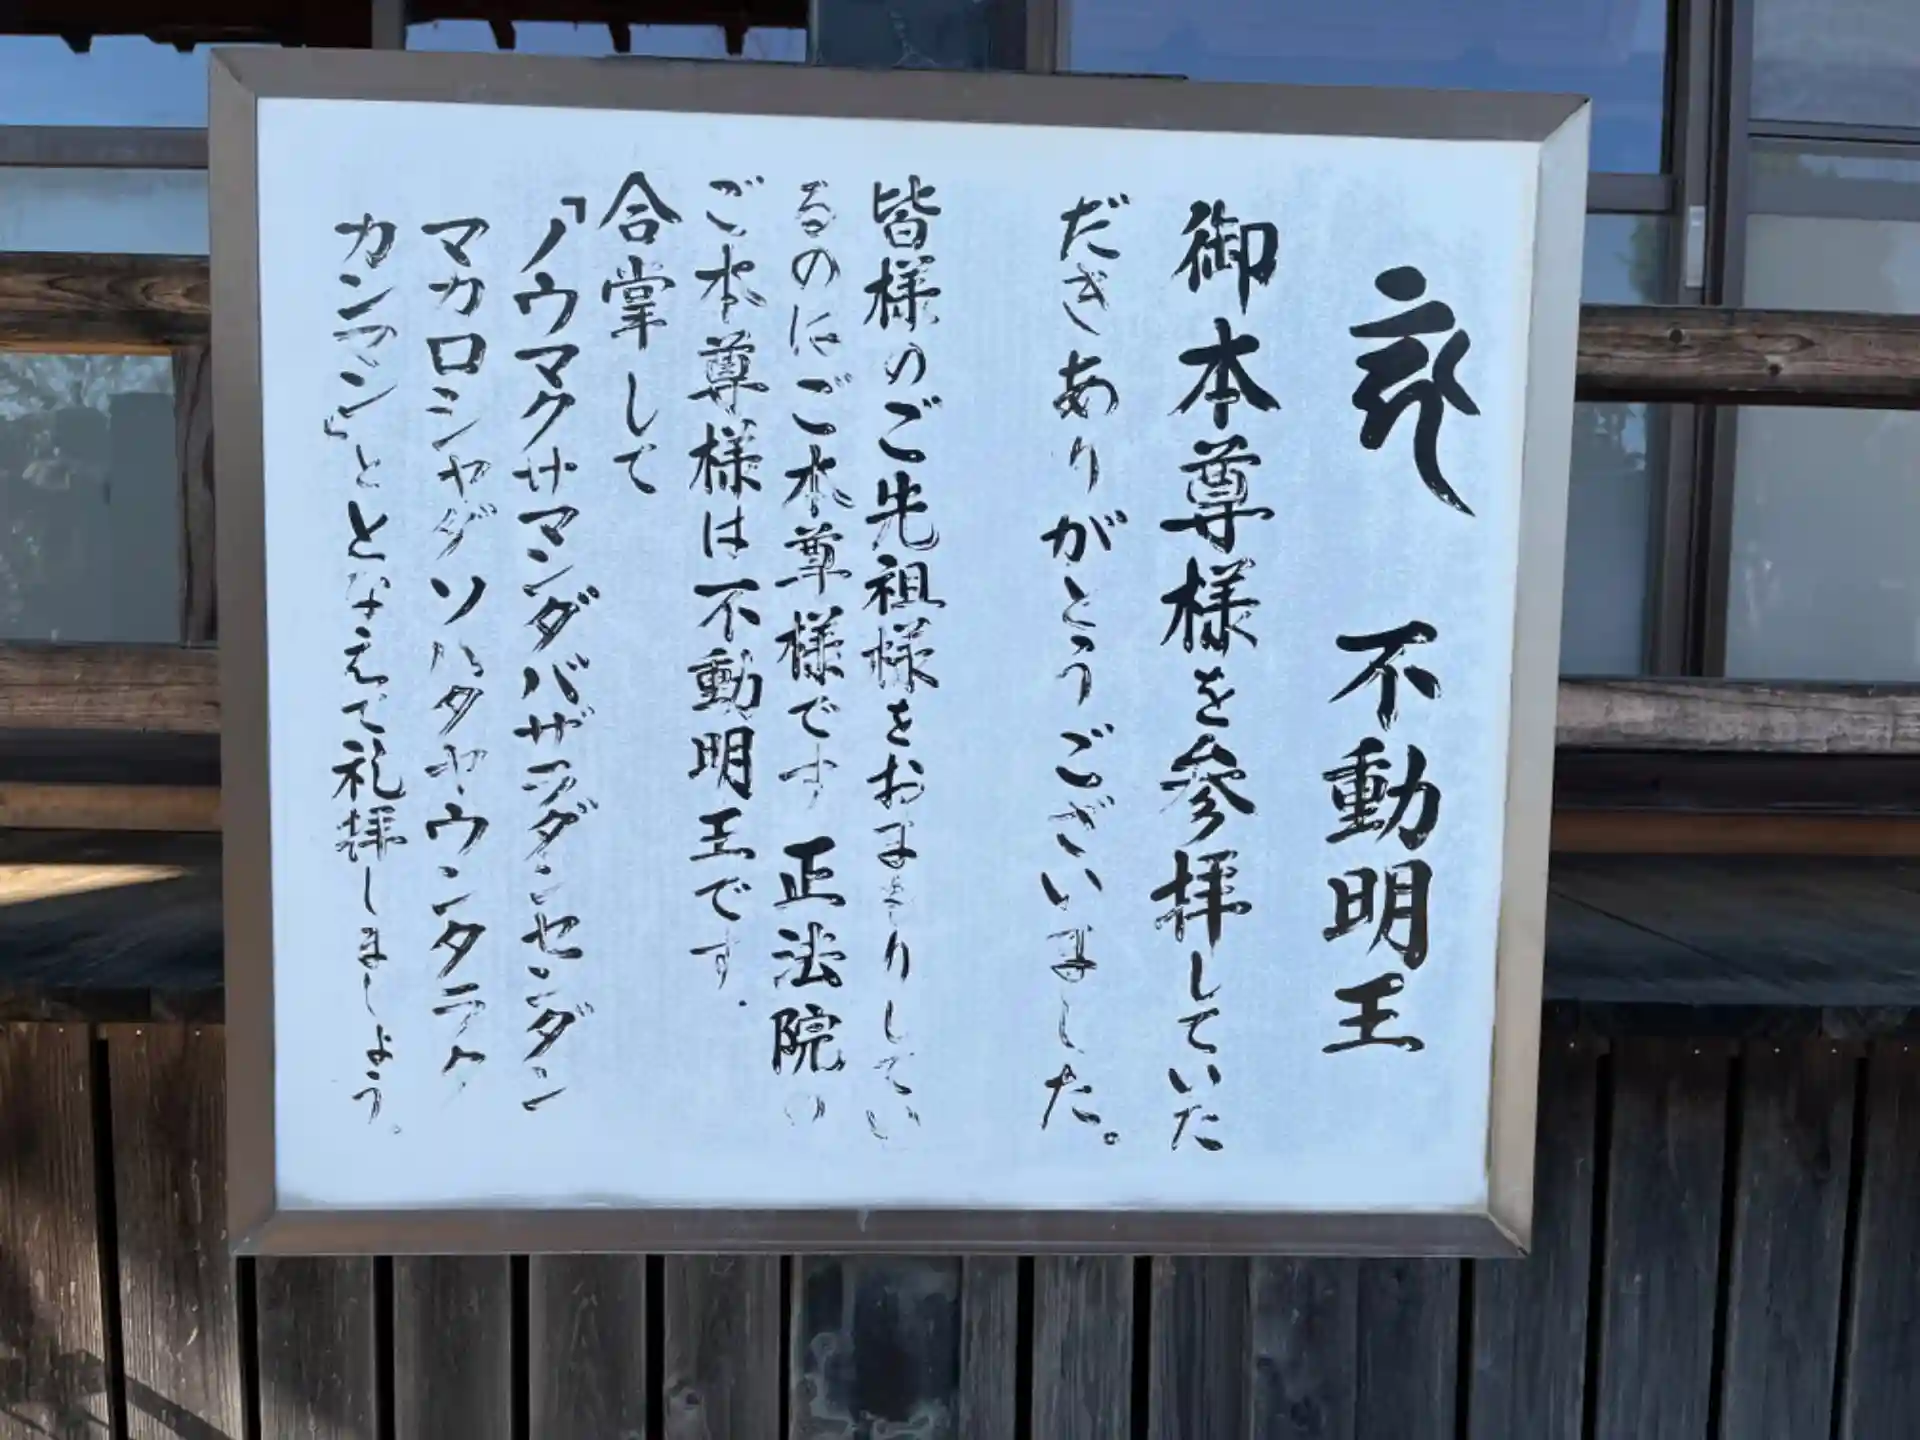 不動明王
御本尊様を参拝していた
だきありがとうございました。
皆様のご先祖様をおまもりしてい
るのはご本尊様です 正法院の
ご本尊様は不動明王です.
合掌して
「ノウマクサマンダバザラダンセンダン
マカロシャダソハタヤウンタラタ
カンマン」ととなえて礼拝しましょう。